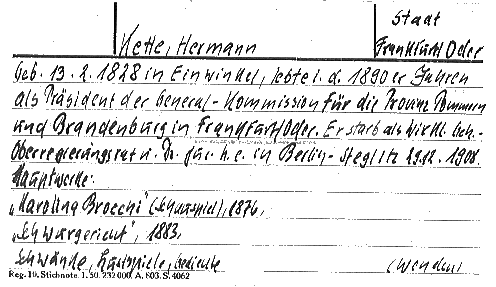 Staat
Kette, Hermann
Frankfurt/Oder
Geb. 13. 2. 1828 in Einwinkel, lebte i. d. 1890er Jahren
als Präsident der General-Kommission für die Provinz Pommern
und Brandenburg in Frankfurt/Oder. Er starb als Wirkl. Geh.-
Oberregierungsrat u. Dr. jur. h. c. in Berlin-Steglitz 29.12. 1908.
Hauptwerke:
„Karolina Brocchi" (Schauspiel), 1876,
„Schwurgericht", 1883.
Schwänke, Lustspiele, Gedichte
(wenden)
Reg. 19. Stichnote. 1. 50. 232 000. A. 803. S. 4062